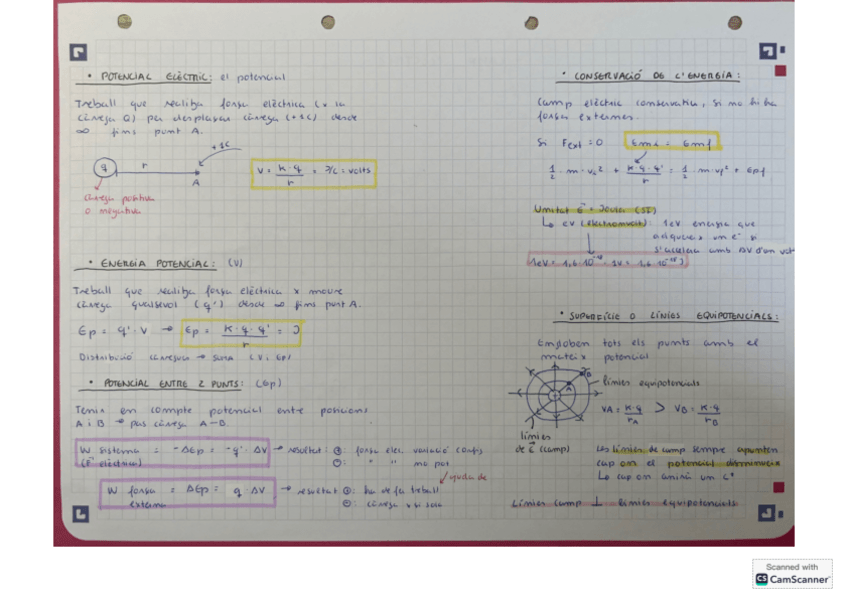 • POTENCIAL ELÈCTRIC: el potencial
Treball que realitza força elèctrica (x la
càrrega Q) per desplaçar càrrega (+1C) desde
∞ fins punt A.
+1C
q r A
V = K·q / r = J/C = volts
càrrega positiva
o negativa
• ENERGIA POTENCIAL: (V)
Treball que realitza força elèctrica x moure
càrrega qualsevol (q') desde ∞ fins punt A.
Ep = q'·V → Ep = K·q·q' / r = J
Distribució càrregues → suma (V i Ep)
• POTENCIAL ENTRE 2 PUNTS: (Ep)
Tenir en compte potencial entre posicions
A i B → pas càrrega A-B.
W sistema = -ΔEp = -q'·ΔV → resultat: ⊕: força elèc. variació config
(F elèctrica) ⊖: " " no pot
ajuda de
W força = ΔEp = q·ΔV → resultat ⊕: ha de fer treball
externa ⊖: càrrega x si sola
• CONSERVACIÓ DE L'ENERGIA:
Camp elèctric conservatiu, si no hi ha
forces externes.
Si Fext = 0 Emi = Emf
1/2 · m · v² + K·q·q' / r = 1/2 · m · vf² + Epf
Unitat E = Joule (SI)
↳ eV (electronvolt): 1eV energia que
adquireix un e⁻ si
s'accelera amb ΔV d'un volt
1eV = 1,6·10⁻¹⁹ · 1V = 1,6·10⁻¹⁹ J
• SUPERFÍCIE O LÍNIES EQUIPOTENCIALS:
Engloben tots els punts amb el
mateix potencial
B
A
línies equipotencials
VA = K·q / rA > VB = K·q / rB
línies
de E (camp)
Les línies de camp sempre apunten
cap on el potencial disminueix
↳ cap on aniria un c⁺
Línies camp ⊥ línies equipotencials
Scanned with
CS CamScanner